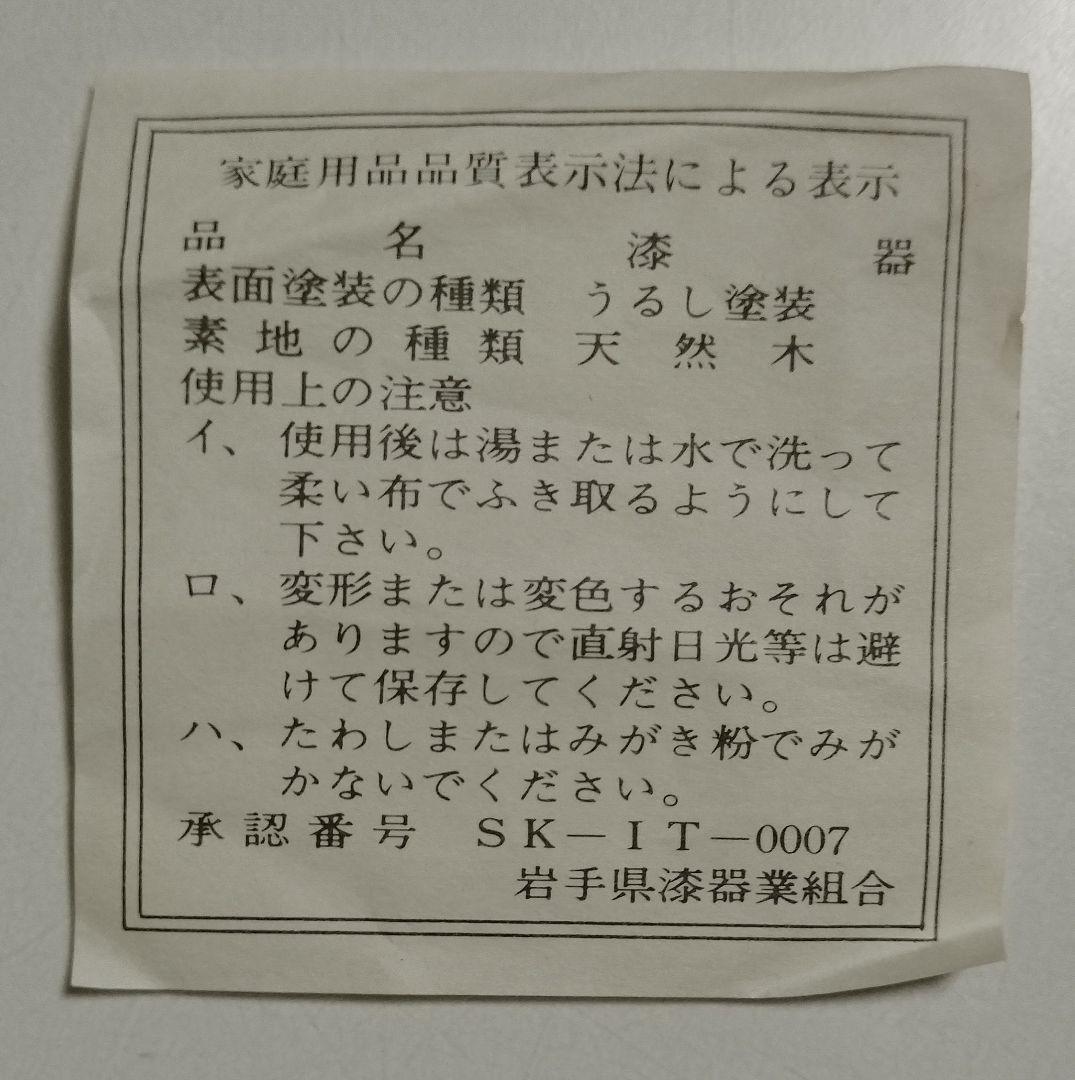 家庭用品品質表示法による表示
品名 漆器
表面塗装の種類 うるし塗装
素地の種類 天然木
使用上の注意
イ、使用後は湯または水で洗って
柔い布でふき取るようにして
下さい。
ロ、変形または変色するおそれが
ありますので直射日光等は避
けて保存してください。
ハ、たわしまたはみがき粉でみが
かないでください。
承認番号 SK－IT－0007
岩手県漆器業組合